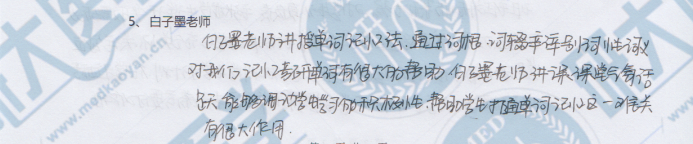 5、白子墨老师
白子墨老师讲授单词记忆法,通过词根、词缀来评别词性词义
对我们记忆考研单词有很大的帮助,白子墨老师讲课,课堂气氛活
跃,能够调动学生学习的积极性,帮助学生打赢单词记忆这一难关
有很大作用.
www.medkaoyan.cn